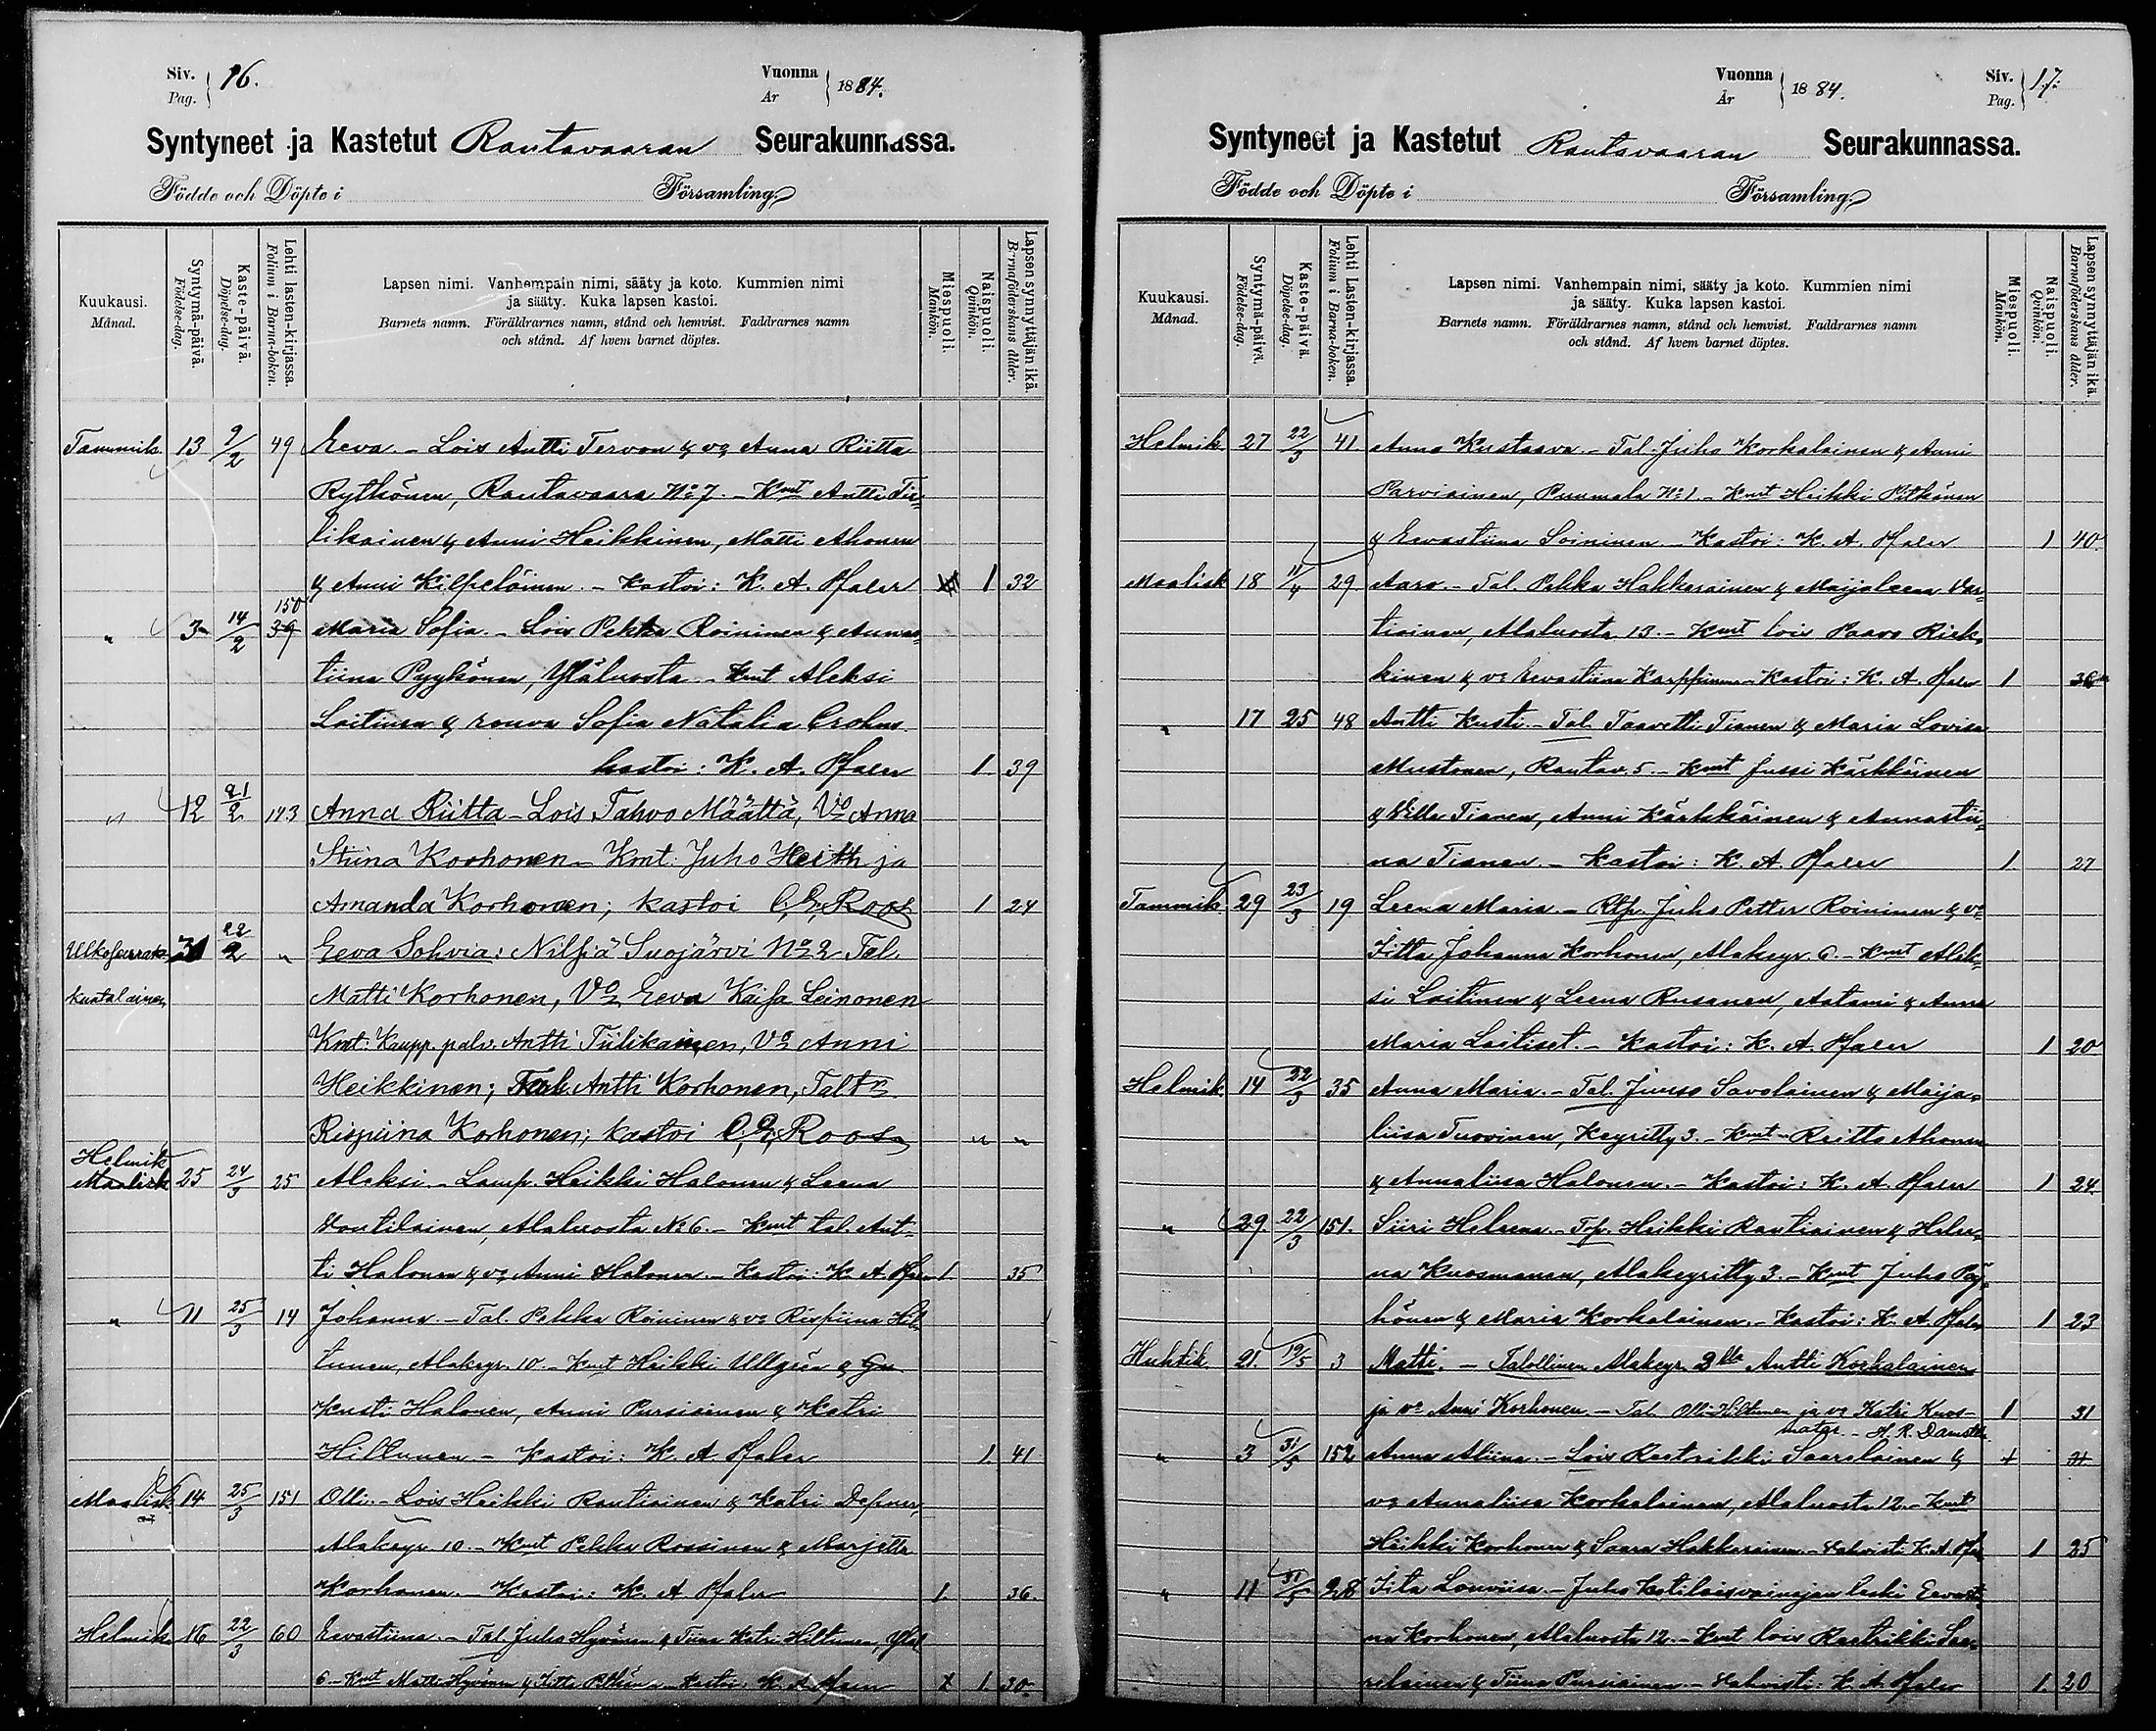 Siv. Pag. 16. Vuonna År 1884.
Syntyneet ja Kastetut Rautavaaran Seurakunnassa.
Födde och Döpte i Församling
Kuukausi. Månad. Syntymä-päivä. Födelse-dag. Kaste-päivä. Döpelse-dag. Lehti lasten-kirjassa. Folium i Barna-boken. Lapsen nimi. Vanhempain nimi, sääty ja koto. Kummien nimi ja sääty. Kuka lapsen kastoi. Barnets namn. Föräldrarnes namn, stånd och hemvist. Faddrarnes namn och stånd. Af hvem barnet döptes. Miespuoli. Mankön. Naispuoli. Qvinkön. Lapsen synnyttäjän ikä. Barnaföderskans ålder.
Tammik. 13 9/2 49 Eeva. - Lois Antti Tervon & vo Anna Riitta
Rytkönen, Rautavaara No 7. - Kmt Antti Tii-
likainen & Anni Heikkinen, Matti Ahonen
& Anni Kilpeläinen. - Kastoi: K. A. Pfaler 1 32
" 3 14/2 150 39 Maria Sofia. - Lois Pekka Roininen & Annas-
tiina Pyykönen, Yläluosta - Kmt Aleksi
Laitinen & rouva Sofia Natalia Crohns.
kastoi: K. A. Pfaler 1. 39
" 12 21/2 143 Anna Riitta - Lois Tahvo Määttä, Vo Anna
Stiina Korhonen - Kmt: Juho Heith ja
Amanda Korhonen; kastoi C. G. Roos 1 24
Ulkoseura- 31 22/2 " Eeva Sohvia: Nilsiä Suojärvi No 2 Tal.
kuntalainen Matti Korhonen, Vo Eeva Kaisa Leinonen
Kmt: Kaupp. palv. Antti Tiilikainen, Vo Anni
Heikkinen; Tal. Antti Korhonen, Tal. tr
Rispiina Korhonen; kastoi C. G. Roos " "
Helmik Maalisk 25 24/3 25 Aleksi. - Lamp. Heikki Halonen & Leena
Voutilainen, Alaluosta No 6. - Kmt tal. Ant-
ti Halonen & vo Anni Halonen. - Kastoi: K. A. Pfaler 1. 35
" 11 25/3 14 Johanna. - Tal. Pekka Roininen & vo Rispiina Hil-
tunen, Alakeyr. 10. - Kmt Heikki Ullgren &
Kusti Halonen, Anni Pursiainen & Katri
Hiltunen. - Kastoi: K. A. Pfaler 1. 41
Maalisk. 14 25/3 151 Olli. - Lois Heikki Rautiainen & Katri
Alakeyr 10. - Kmt Pekka Rossinen & Marjetta
Korhonen. - Kastoi: K. A. Pfaler 1. 36.
Helmik 16 22/3 60 Eevastiina. - Tal. Juho Hyvönen & Tiina Katri Hiltunen, Yläl
6 - Kmt Matti Hyvönen & Iitta Pitkänen - Kastoi: K. A. Pfaler 1. 30.
Vuonna År 1884. Siv. Pag. 17.
Syntyneet ja Kastetut Rautavaaran Seurakunnassa.
Födde och Döpte i Församling
Kuukausi. Månad. Syntymä-päivä. Födelse-dag. Kaste-päivä. Döpelse-dag. Lehti Lasten-kirjassa. Folium i Barna-boken. Lapsen nimi. Vanhempain nimi, sääty ja koto. Kummien nimi ja sääty. Kuka lapsen kastoi. Barnets namn. Föräldrarnes namn, stånd och hemvist. Faddrarnes namn och stånd. Af hvem barnet döptes. Miespuoli. Mankön. Naispuoli. Qvinkön. Lapsen synnyttäjän ikä. Barnaföderskans ålder.
Helmik. 27 22/3 41. Anna Kustaava. - Tal. Juho Korkalainen & Anni
Parviainen, Puumala No 1. - Kmt Heikki Pitkänen
& Eevastiina Soininen. - Kastoi: K. A. Pfaler 1 40.
Maalisk 18 11/4 29 Aaro. - Tal. Pekka Hakkarainen & Maijaleena Var-
tiainen, Alaluosta 13. - Kmt lois Paavo Riek-
kinen & vo Eevastiina Karppinen - Kastoi: K. A. Pfaler 1
" 17 25 48 Antti Kusti. - Tal. Taavetti Tianen & Maria Lovisa
Mustonen, Rautav. 5. - Kmt Jussi Kärkkäinen
& Ville Tianen, Anni Kärkkäinen & Annastii-
na Tianen. - Kastoi: K. A. Pfaler 1. 27
Tammik. 29 23/3 19 Leena Maria. - Juho Petter Roininen & vo
Iitta Johanna Korhonen, Alakeyr. 6. - Kmt Alek-
si Laitinen & Leena Rusanen, Aatami & Anna
Maria Laitiset. - Kastoi: K. A. Pfaler 1 20
Helmik. 14 22/3 35 Anna Maria. - Tal. Juvso Savolainen & Maija-
liisa Tuovinen, Keyritty 3. - Kmt Reitto Ahonen
& Annaliisa Halonen. - Kastoi: K. A. Pfaler 1 24.
" 29. 22/3 151. Siiri Helena. - Tp. Heikki Rautiainen & Hele-
na Kuosmanen, Alakeyritty 3. - Kmt Juho Pöy-
hönen & Maria Korkalainen. - Kastoi: K. A. Pfaler 1 23
Huhtik. 21. 19/5 3 Matti. - Talollinen Alakeyr. 2lla Antti Korkalainen
ja vo Anni Korhonen. - Tal. Olli Hiltunen ja vo Katri Kuos- 1 31
matar. - H. R. Damstén.
" 3 31/5 152 Anna Aliina. - Lois Raetrikki Saarelainen &
vo Annaliisa Korkalainen, Alaluosta 12. - Kmt
Heikki Korhonen & Saara Hakkarainen. - Vahvisti K. A. Pfaler 1 25
" 11 31/5 28 Iita Loviisa. - Juho leski Eevasti-
na Korhonen, Alaluosta 12. - Kmt lois Raetrikki Saa-
relainen & Tiina Pursiainen. - Vahvisti: K. A. Pfaler 1. 20